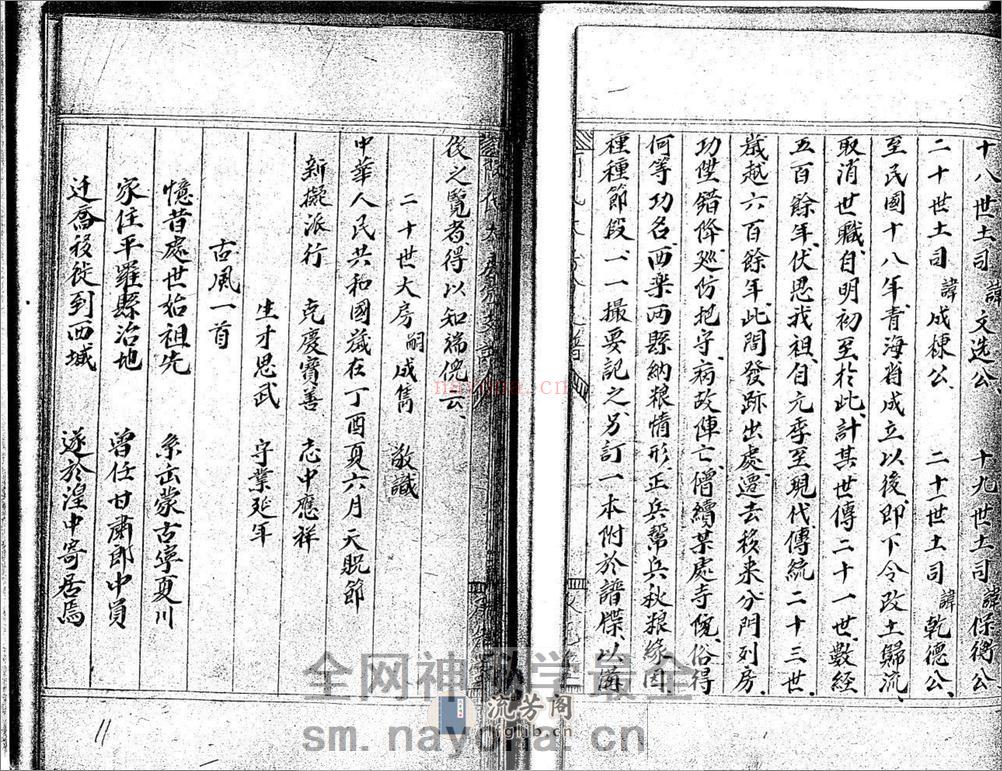 十八世土司 諱文选公 十九世土司 諱保衡公
二十世土司 諱成棟公 二十一世土司 諱乾德公
至民國十八年青海省成立以後即下令改土歸流
取消世職自明初至於此計其世傳二十一世數經
五百餘年伏思我祖自元季至現代傳統二十三世
歲越六百餘年此間發跡出處遷去移来分門列房
功陞錯降廵防把守病故陣亡僧續某處寺院俗得
何等功名西樂两縣納粮情形正兵幫兵秋粮缘因
種種節段一一撮要記之另訂一本附於譜牒以備
後之覽者得以知端倪云
二十世大房 嗣成雋 敬識
中華人民共和國歲在丁酉夏六月天貺節
新擬派行 克慶寳善 志中應祥
生才思武 守業延年
古風一首
憶昔處世始祖先 系出蒙古寧夏川
家住平羅縣治地 曾任甘肅郎中員
迁喬移徙到西域 遂於湟中寄居焉
11
全网神秘学最全
sm.nayona.cn
nayona.cn
流芳阁
rglub.cn